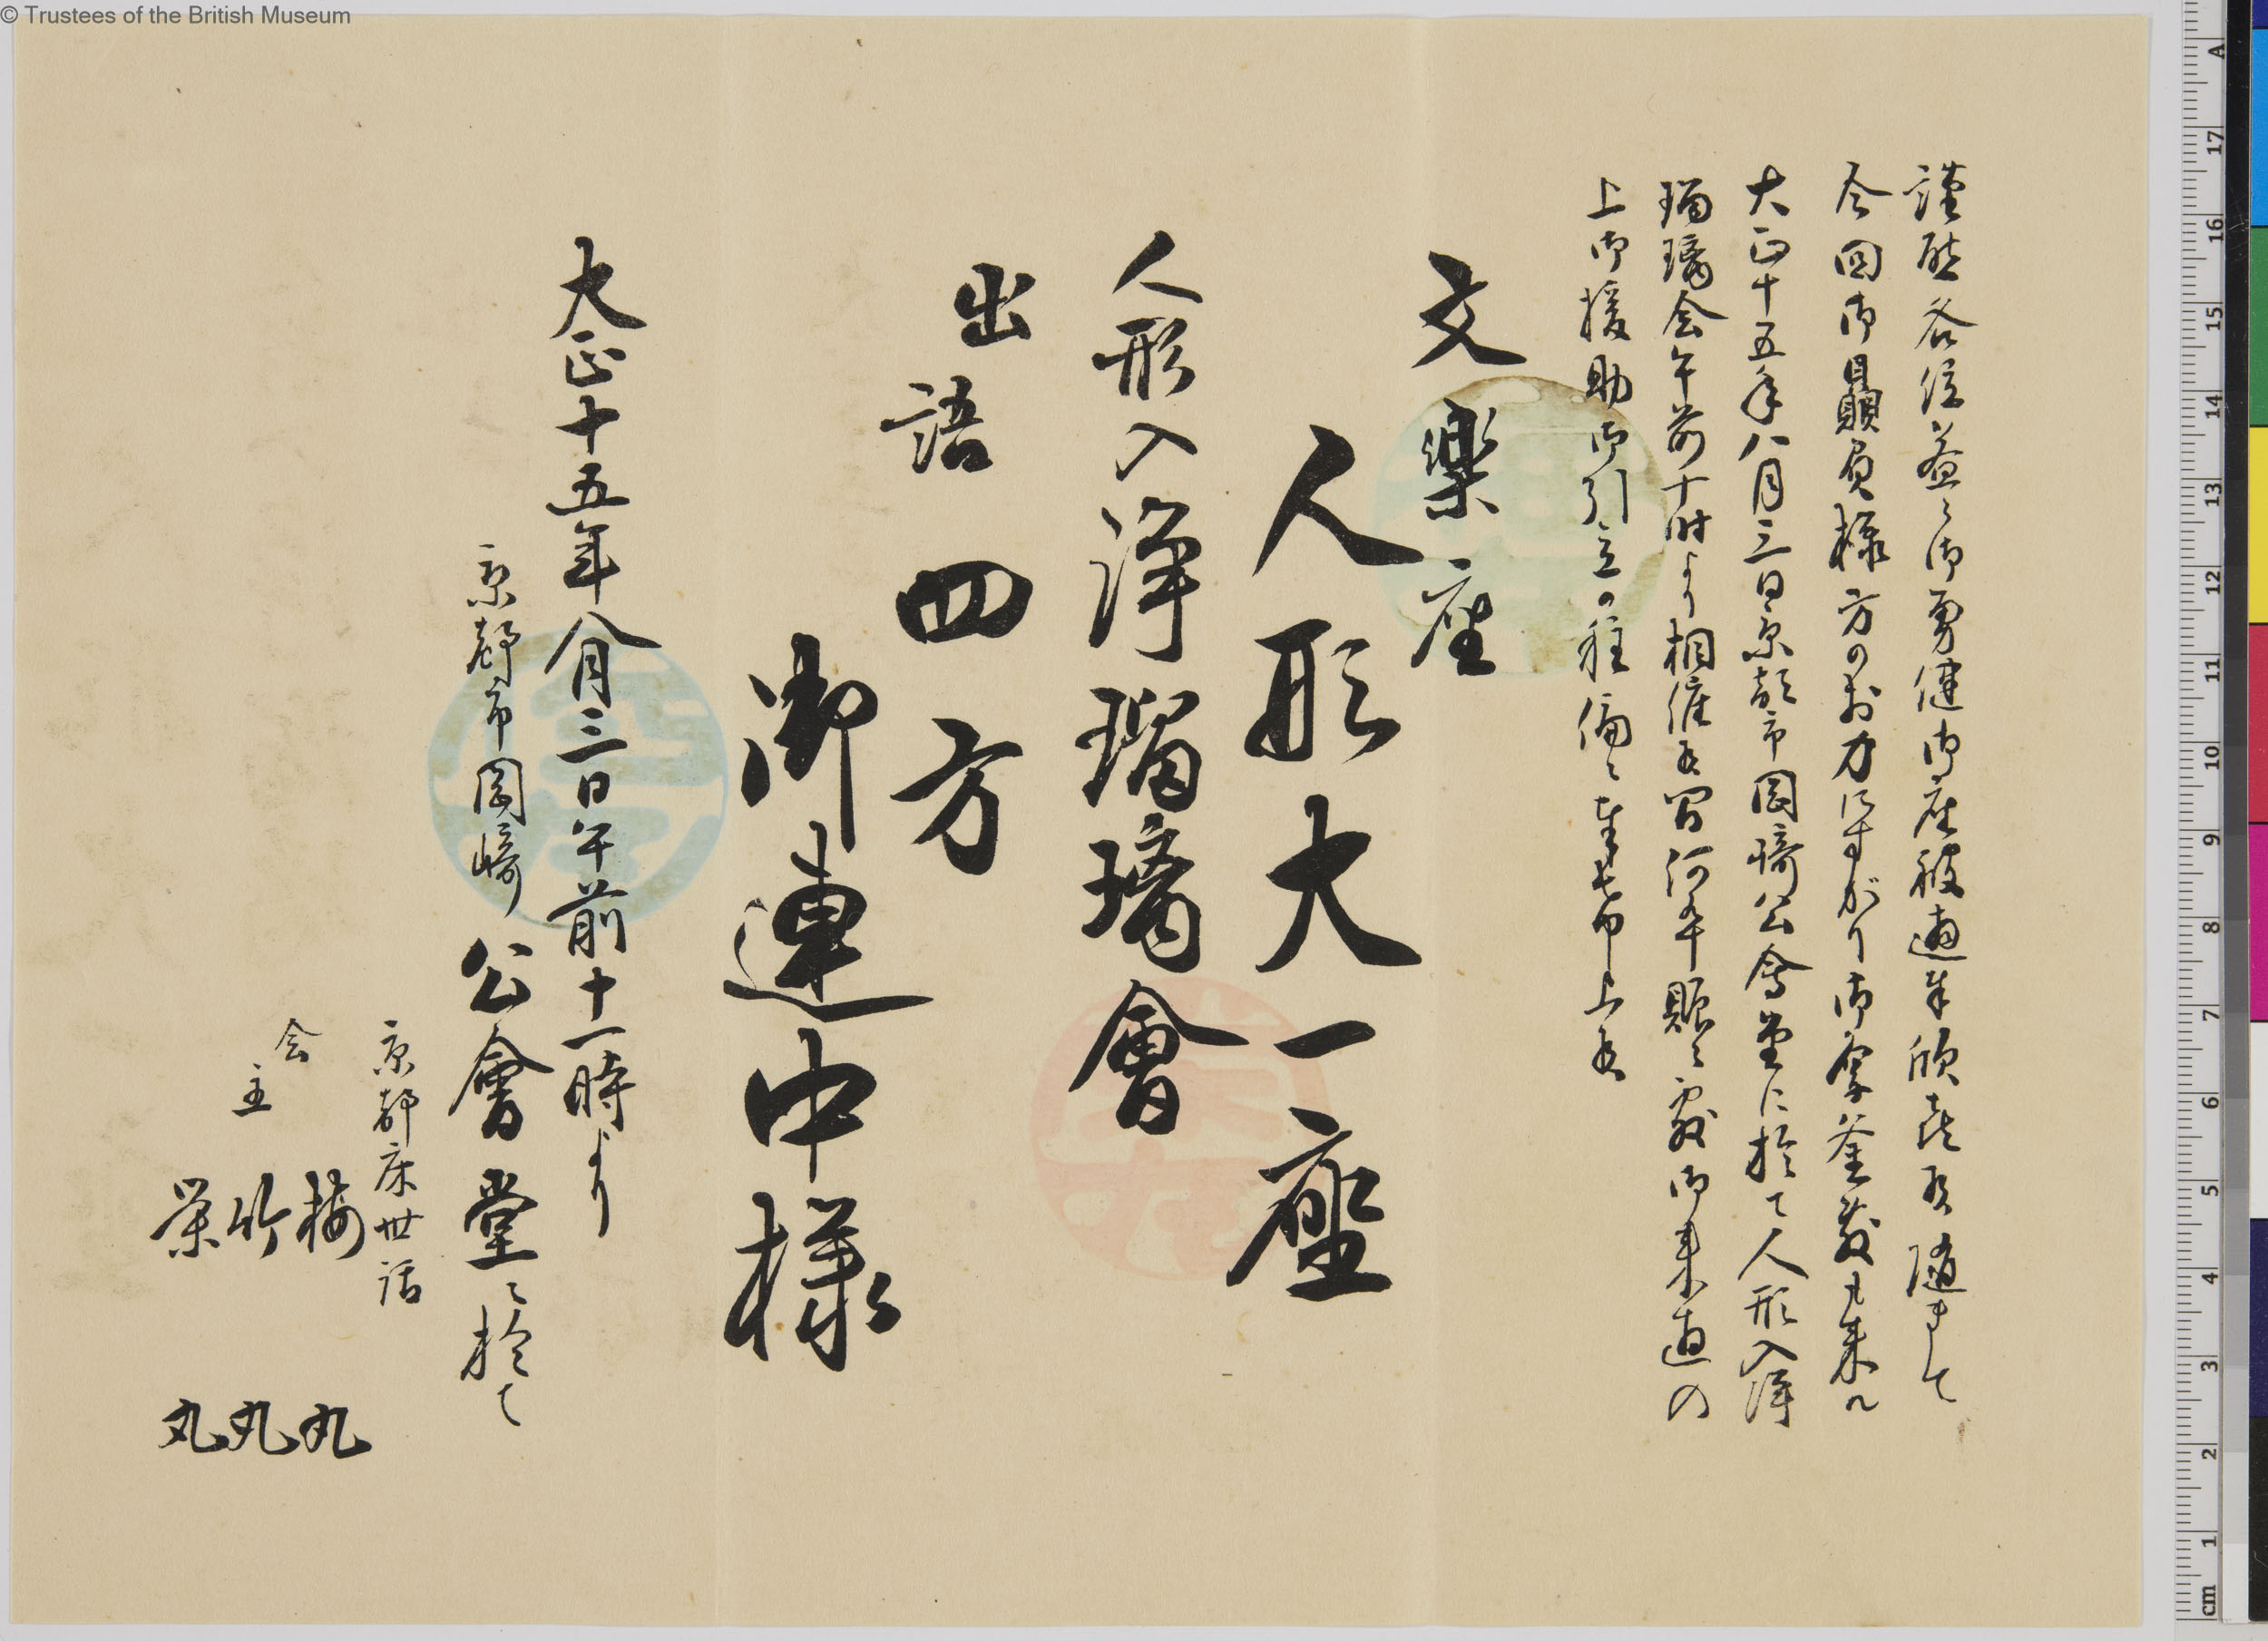 謹啓各位益々御勇健御座被遊奉欣喜候随まして
今回御贔負様方のお力にすがり御定釜敷も来ル
大正十五年八月三日京都市岡崎公会堂に於て人形入浄
瑠璃会午前十時より相催候間何卒賑々敷御来遊の
上御援助御引立の程偏に奉希申上候
文樂座
人形大一座
人形入浄瑠璃會
出語四方
御連中様
大正十五年八月三日午前十一時より
京都市岡崎公會堂ニ於て
京都床世話
会主
梅丸
竹丸
栄丸
© Trustees of the British Museum